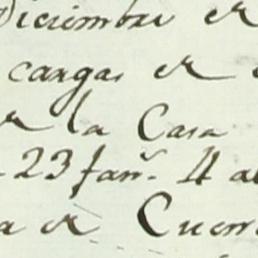 Diciembre de
cargas de
la Casa
23 fan.s 4 al
a de Cuen